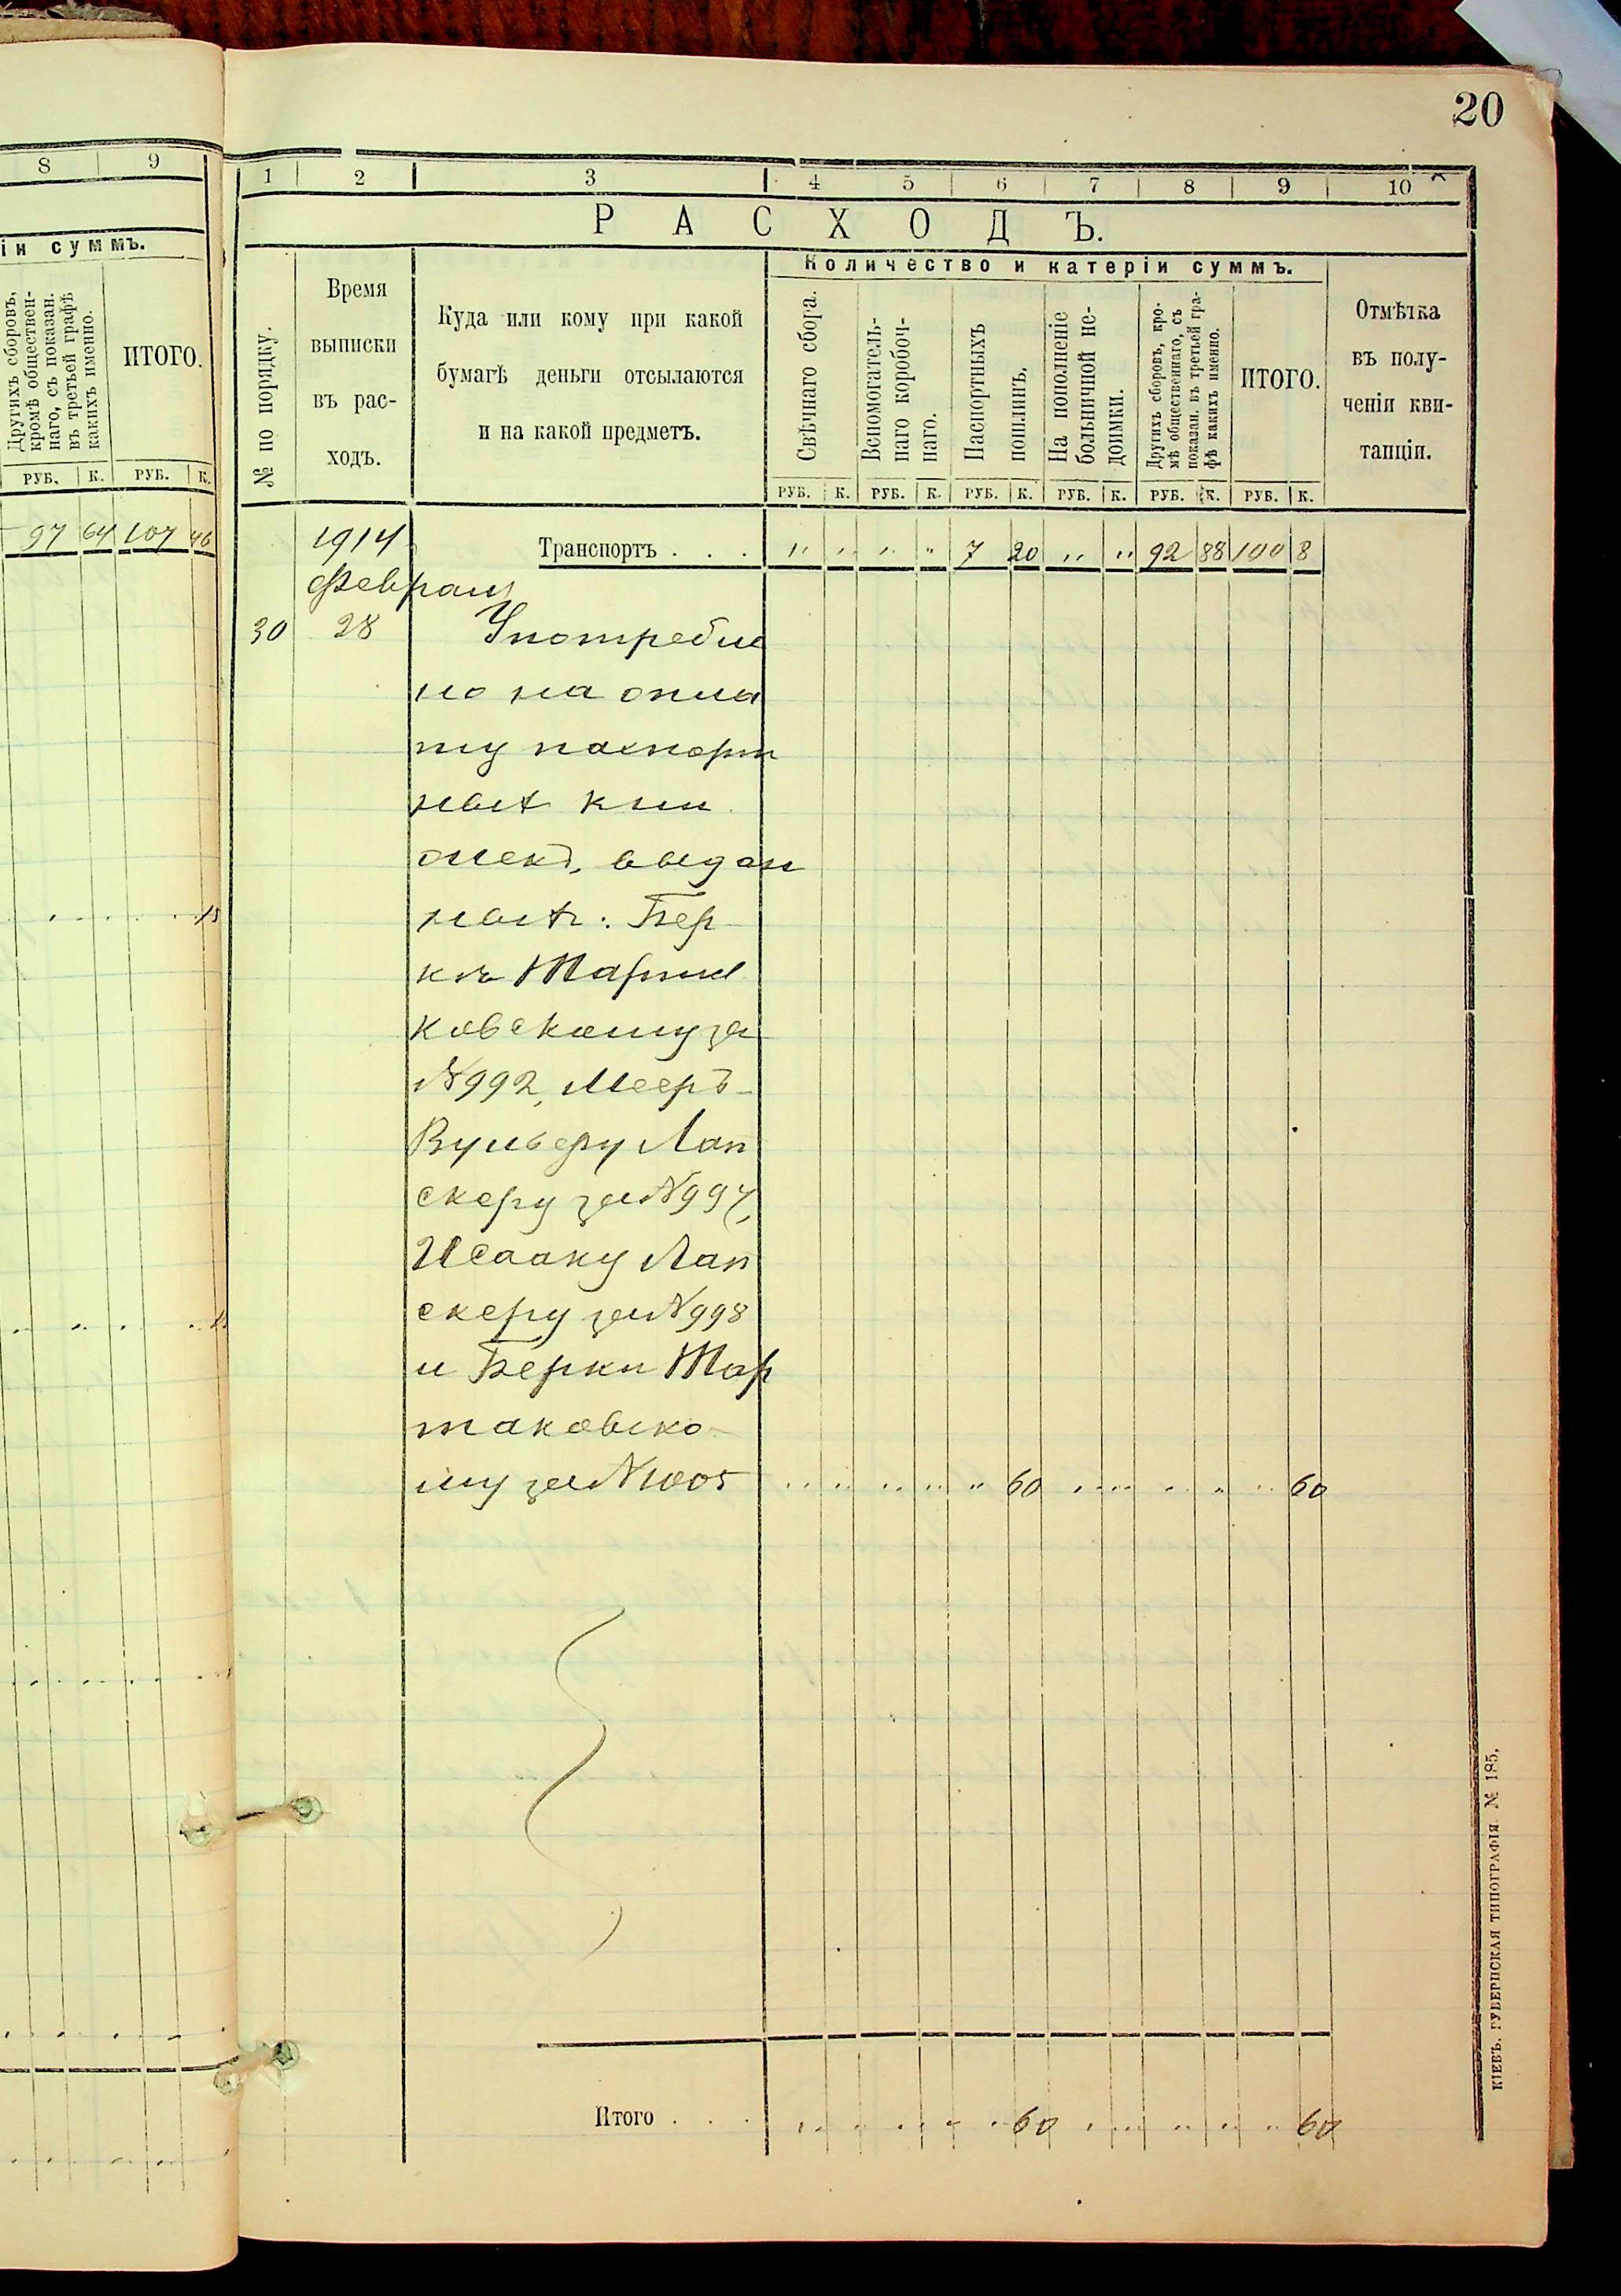 20
8 9
ін суммъ.
Другихъ сборовъ,
кромѣ обществен-
наго, съ показан.
въ третьей графѣ
какихъ именно.
ИТОГО.
РУБ. К. РУБ. К.
97 64 107 46
15
1 2 3 4 5 6 7 8 9 10
РАСХОДЪ.
Количество и катеріи суммъ.
№ по порядку.
Время
выписки
въ рас-
ходъ.
Куда или кому при какой
бумагѣ деньги отсылаются
и на какой предметъ.
Свѣчнаго сбора.
Вспомогатель-
наго коробоч-
наго.
Паспортныхъ
пошлинъ.
На пополненіе
больничной не-
доимки.
Другихъ сборовъ, кро-
мѣ общественнаго, съ
показан. въ третьей гра-
фѣ какихъ именно.
ИТОГО.
Отмѣтка
въ полу-
ченіи кви-
танціи.
РУБ. К. РУБ. К. РУБ. К. РУБ. К. РУБ. К. РУБ. К.
1914 Транспортъ . . . " " " " 7 20 " " 92 88 100 8
Февраля
30 28 Употребле
но на опла
ту паспорт
ныхъ кни
жекъ, выдан
ныхъ: Бер
кѣ
ковскому за
№992, Мееръ-
Вульфу Лап
скеру за №997,
Исааку Лап
скеру за №998
и Берки Тар
таковско-
му за №1005 " " " " " 60 " " " " " 60
Итого . . . " " " " " 60 " " " " " 60
КІЕВЪ. ГУБЕРНСКАЯ ТИПОГРАФІЯ. № 185.